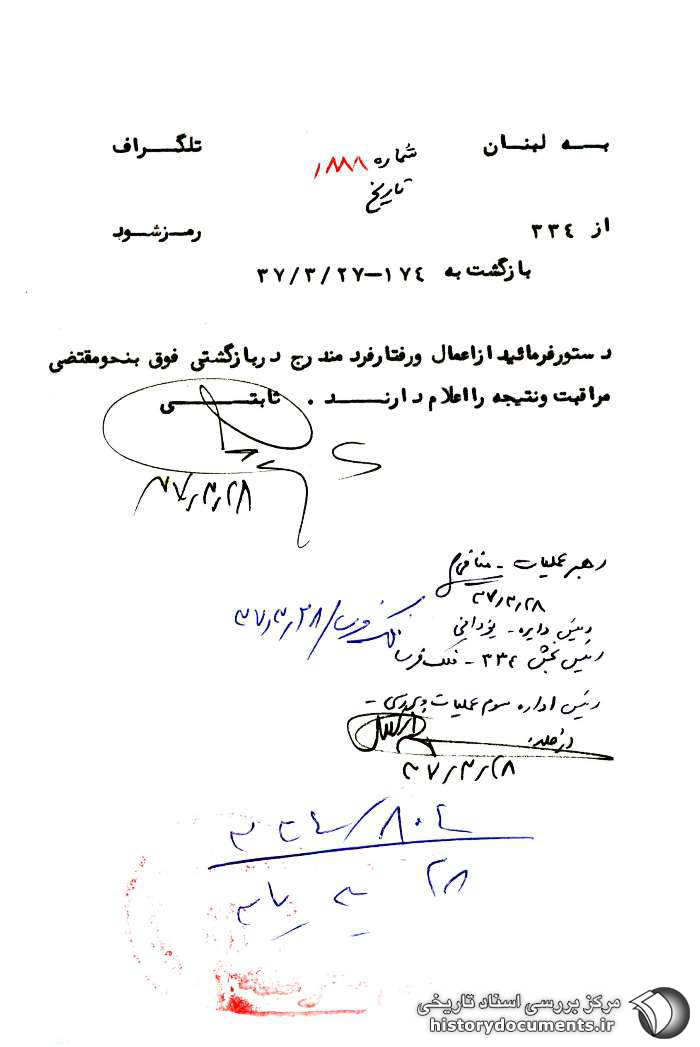 به لبنان
شماره
تلگراف
تاریخ
از ۳۳۴
رمز شود
بازگشت به ۱۷۴-۳۷/۳/۲۷
دستور فرمائید از اعمال و رفتار فرد مندرج در بازگشتی فوق بنحو مقتضی
مراقبت و نتیجه را اعلام دارند . ثابتی
۳۷/۳/۲۸
رهبر عملیات -
۳۷/۳/۲۸
رئیس دایره - یزدانی
۳۷/۳/۲۸
رئیس بخش ۳۳۴ -
رئیس اداره سوم عملیات و بررسی -
۳۷/۳/۲۸
۳۳۴/۸۰۴
مرکز بررسی اسناد تاریخی
historydocuments.ir